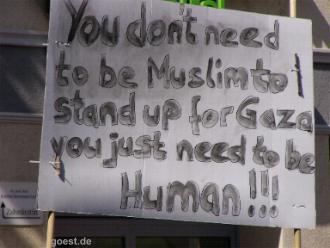 You don't need
to be Muslim to
stand up for Gaza
you just need to be
Human!!!
Zahnärztin
goest.de